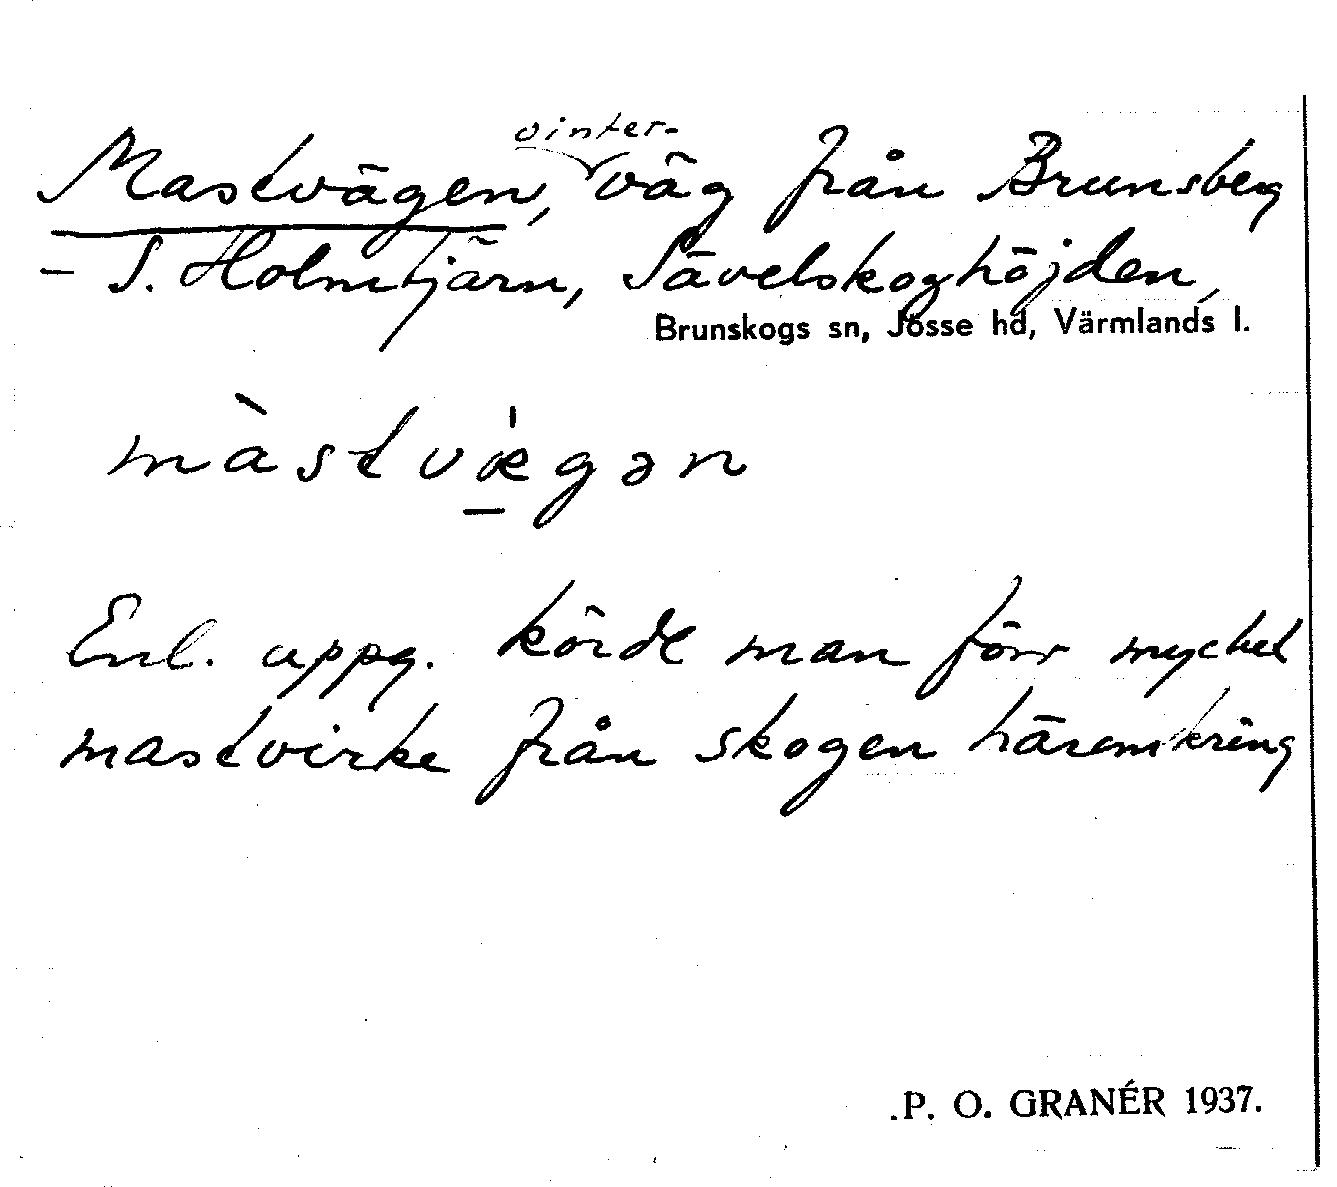 Mastvägen, vinter-väg från Brunsberg
– S. Holmtjärn, Sävelskoghöjden,
Brunskogs sn, Jösse hd, Värmlands l.
màstvǽ̱gən
Enl. uppg. körde man förr mycket
mastvirke från skogen häromkring
P. O. GRANÉR 1937.